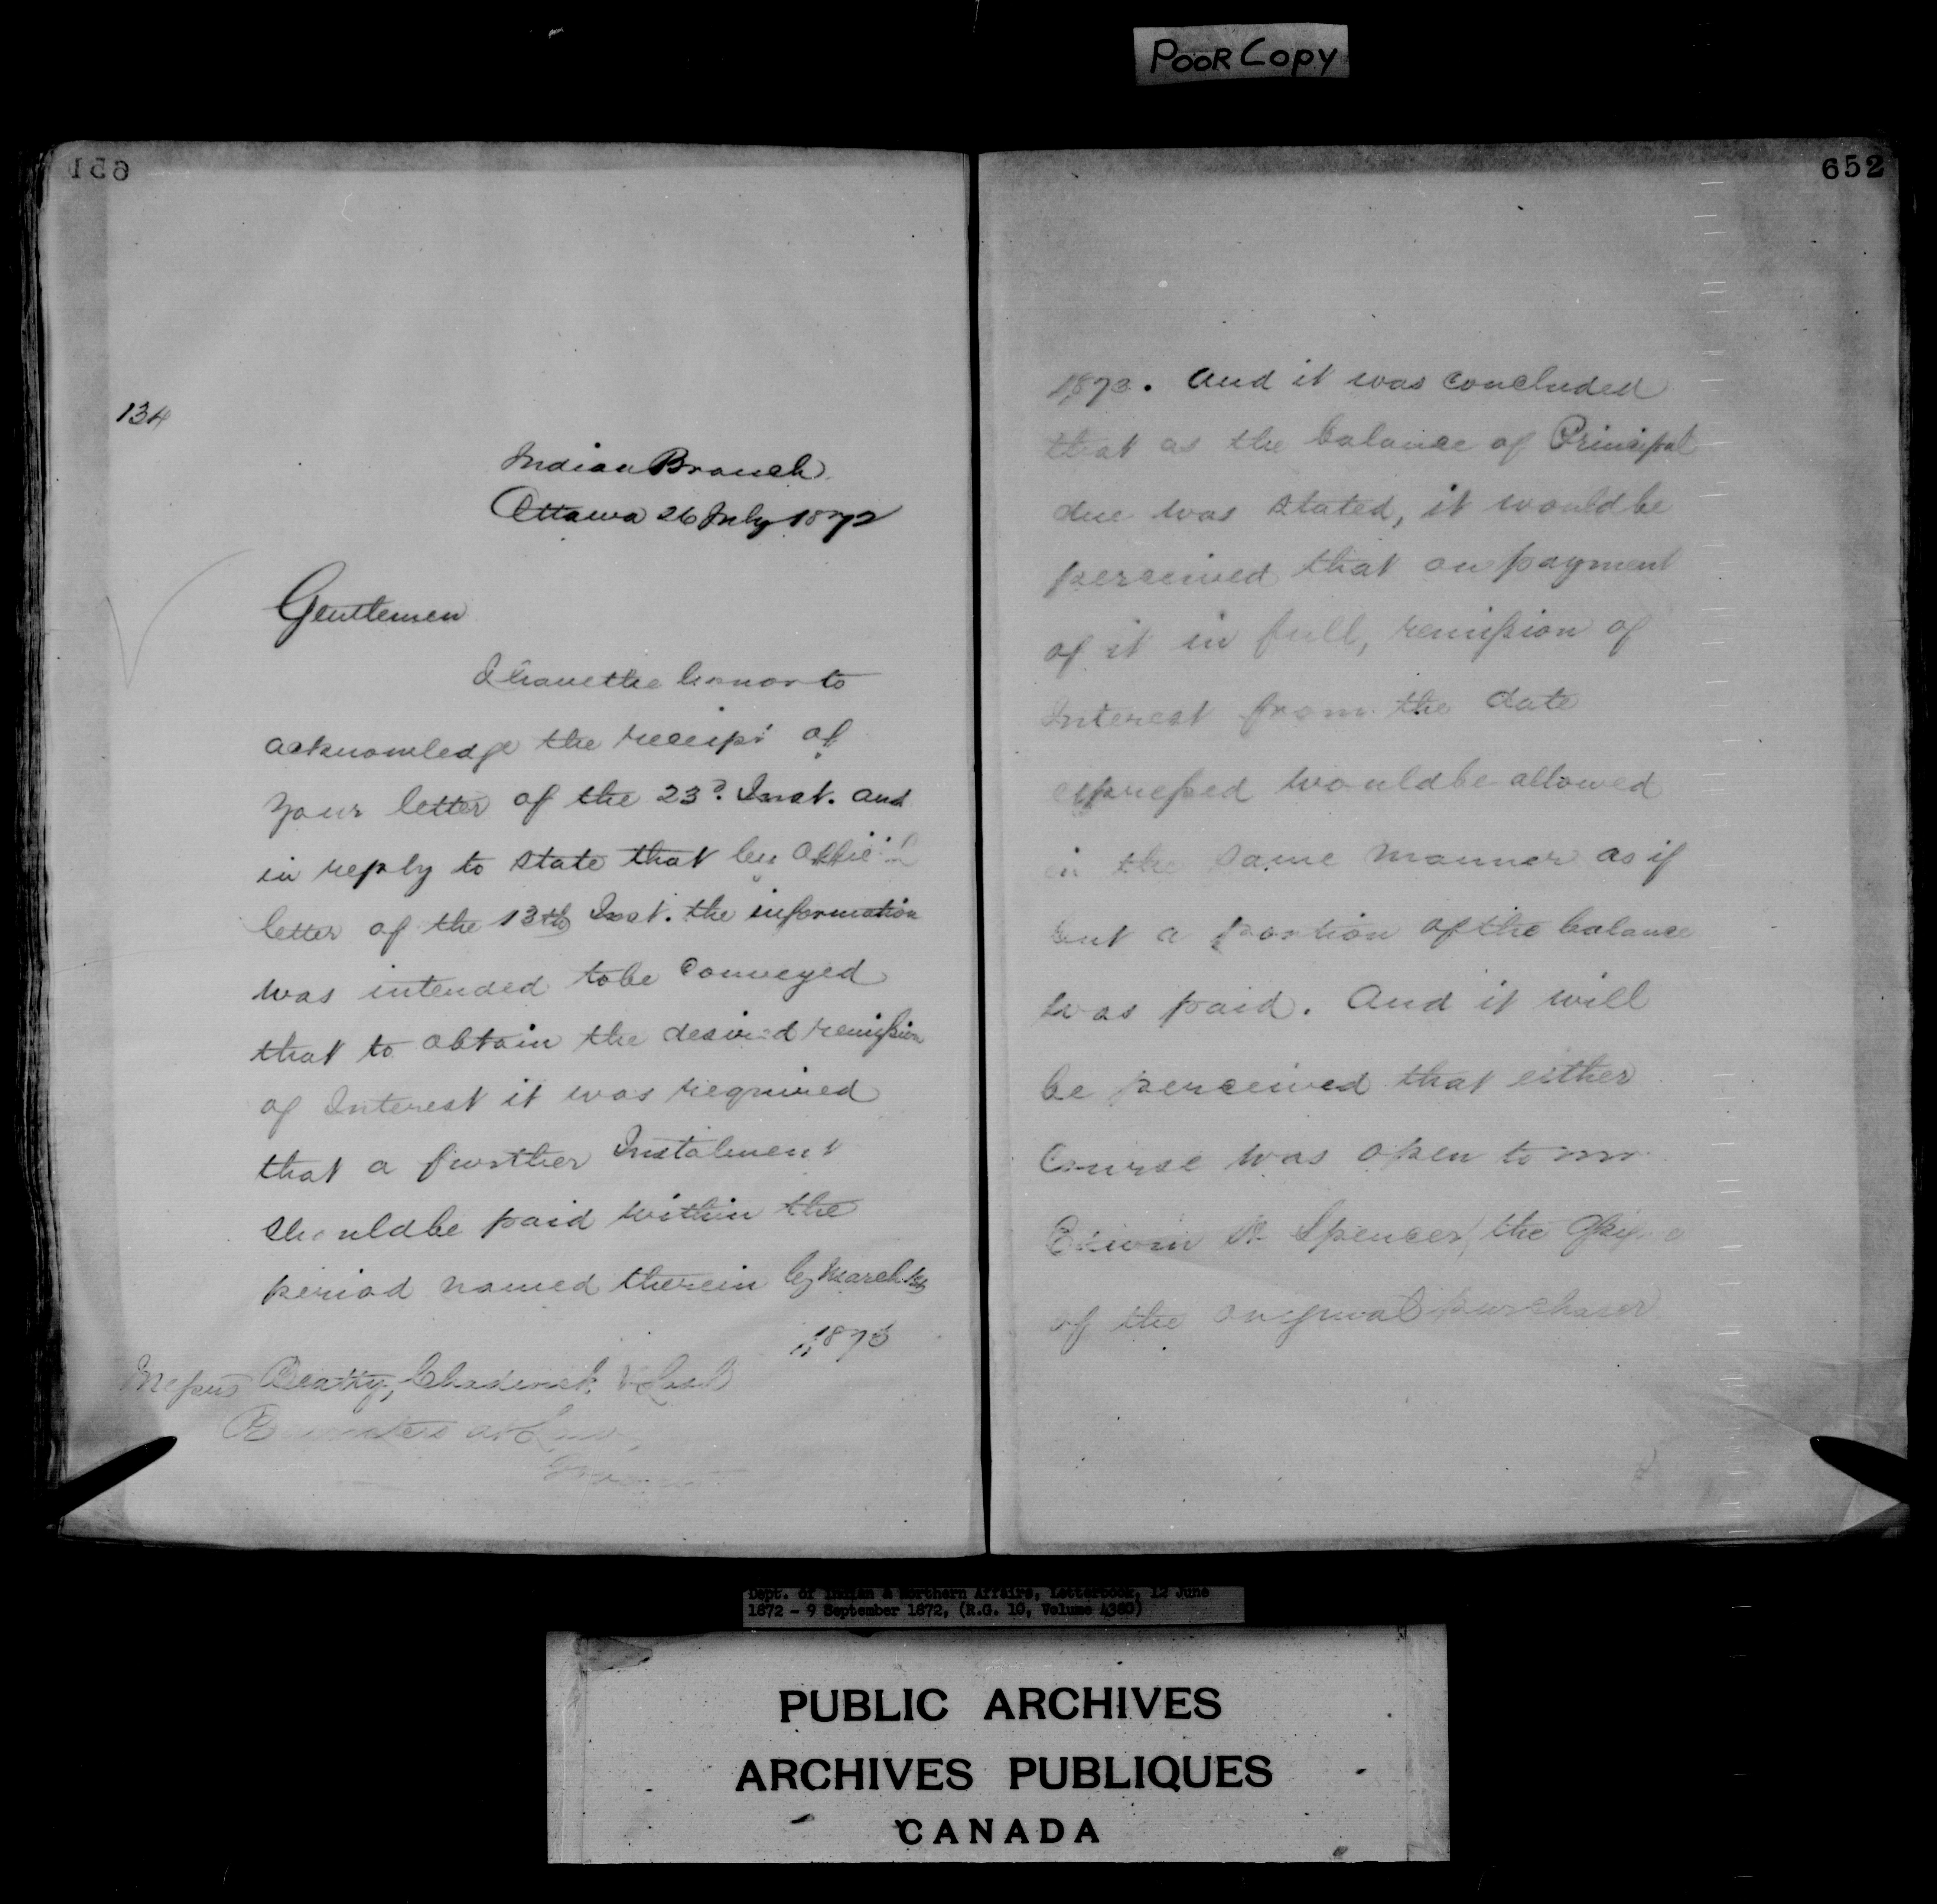 POOR Copy
651
134
Indian Branch
Ottawa 26 July 1872
Gentlemen
I have the honor to
acknowledge the receipt of
your letter of the 23d. Inst. and
in reply to state that by
letter of the 13th Inst. the information
was intended to be conveyed
that to obtain the desired remission
of Interest it was required
that a further Instalment
should be paid within the
period named therein by March
1873
Messrs Beatty, Chadwick &
Barristers at Law
652
1873. And it was concluded
that as the balance of Principal
due was stated, it would be
perceived that on payment
of it in full, remission of
Interest from the date
expressed would be allowed
in the same manner as if
but a portion of the balance
was paid. And it will
be perceived that either
Course was open to Mr.
Spencer, the
of the original purchaser
Dept. of Indian & Northern Affairs, Letterbook, 12 June
1872 - 9 September 1872, (R.G. 10, Volume 4380)
PUBLIC ARCHIVES
ARCHIVES PUBLIQUES
CANADA